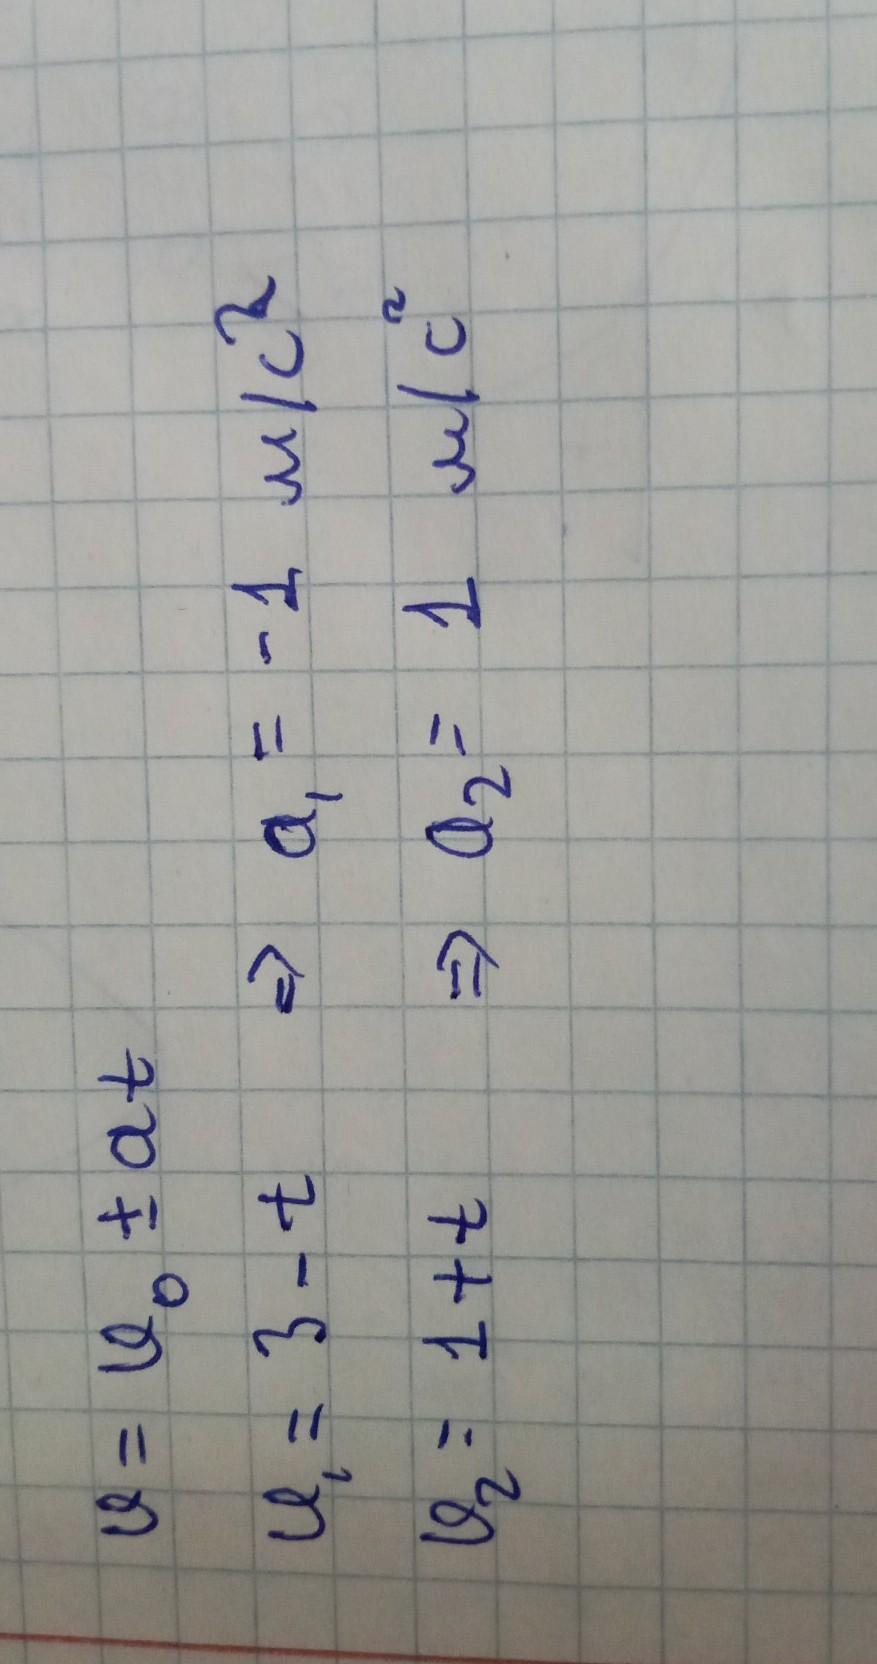 υ = υ₀ ± at
υ₁ = 3 - t ⇒ a₁ = -1 м/с²
υ₂ = 1 + t ⇒ a₂ = 1 м/с²